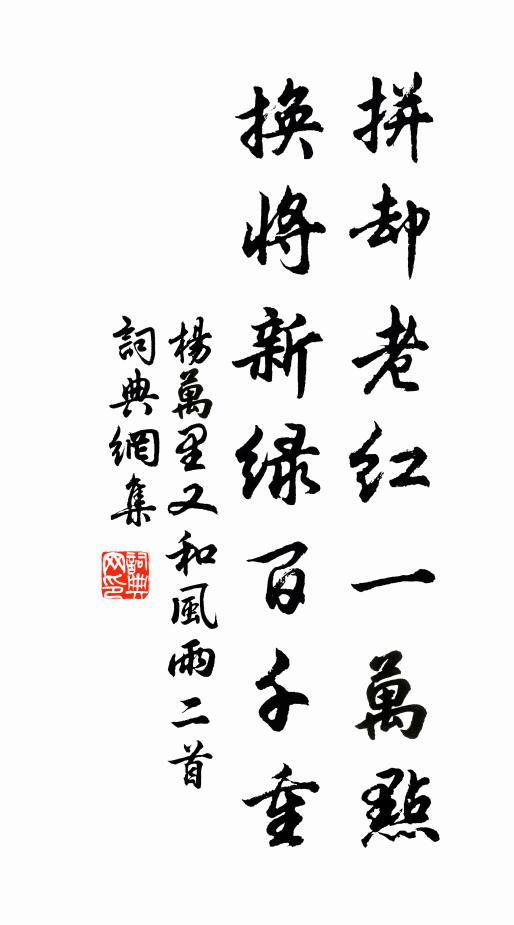 拼却老紅一萬點
換將新緑百千重
楊萬里又和風雨二首
詞典網集
詞典網印